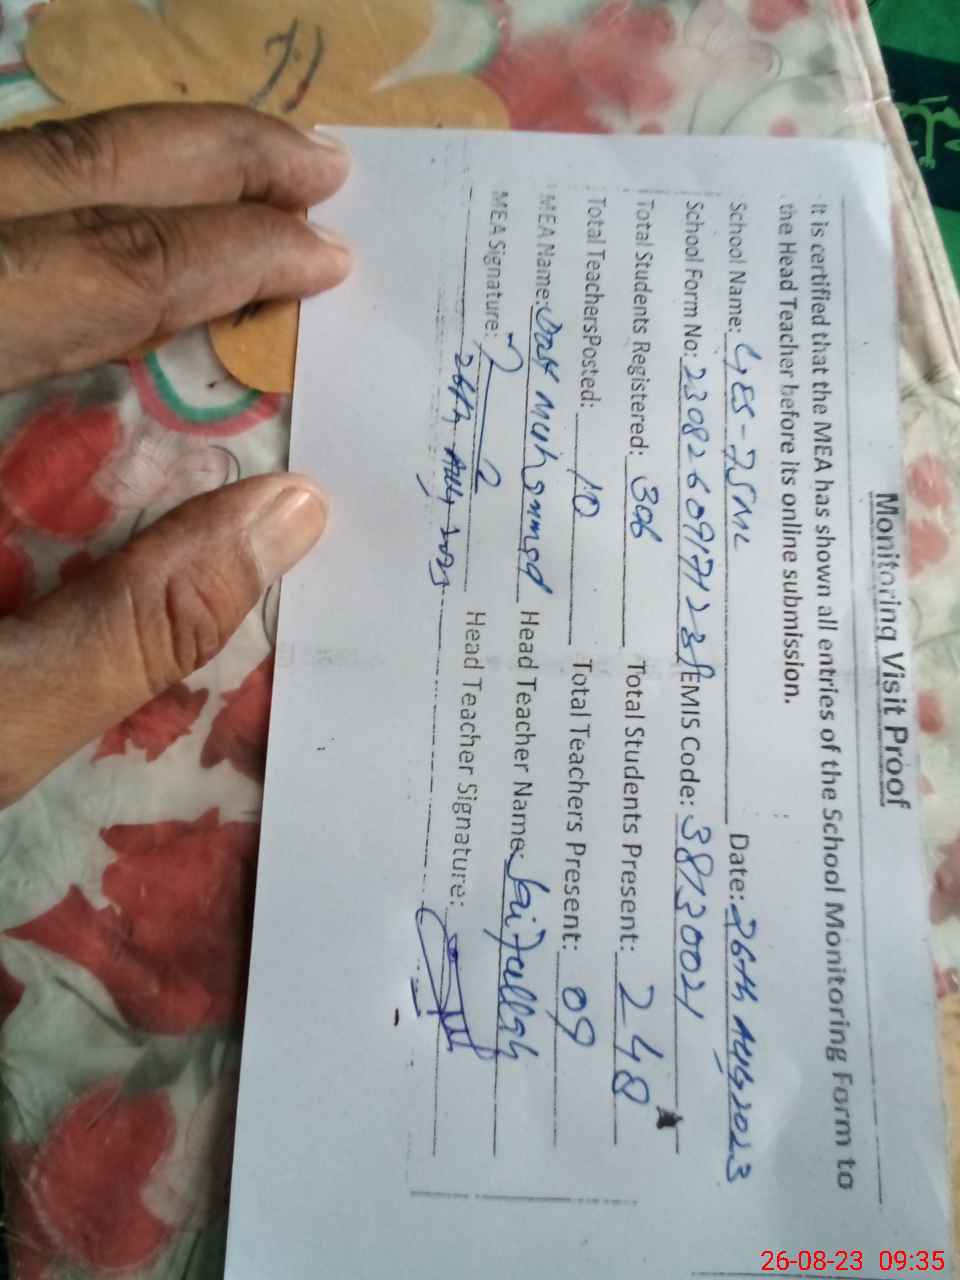 Monitoring Visit Proof
It is certified that the MEA has shown all entries of the School Monitoring Form to
the Head Teacher before its online submission.
School Name: Date: 26th Aug 2023
School Form No: EMIS Code: 38130021
Total Students Registered: 306 Total Students Present: 248
Total TeachersPosted: 10 Total Teachers Present: 09
MEA Name: Muhammad Head Teacher Name: Saifullah
MEA Signature: Head Teacher Signature:
26th Aug 2023
26-08-23 09:35